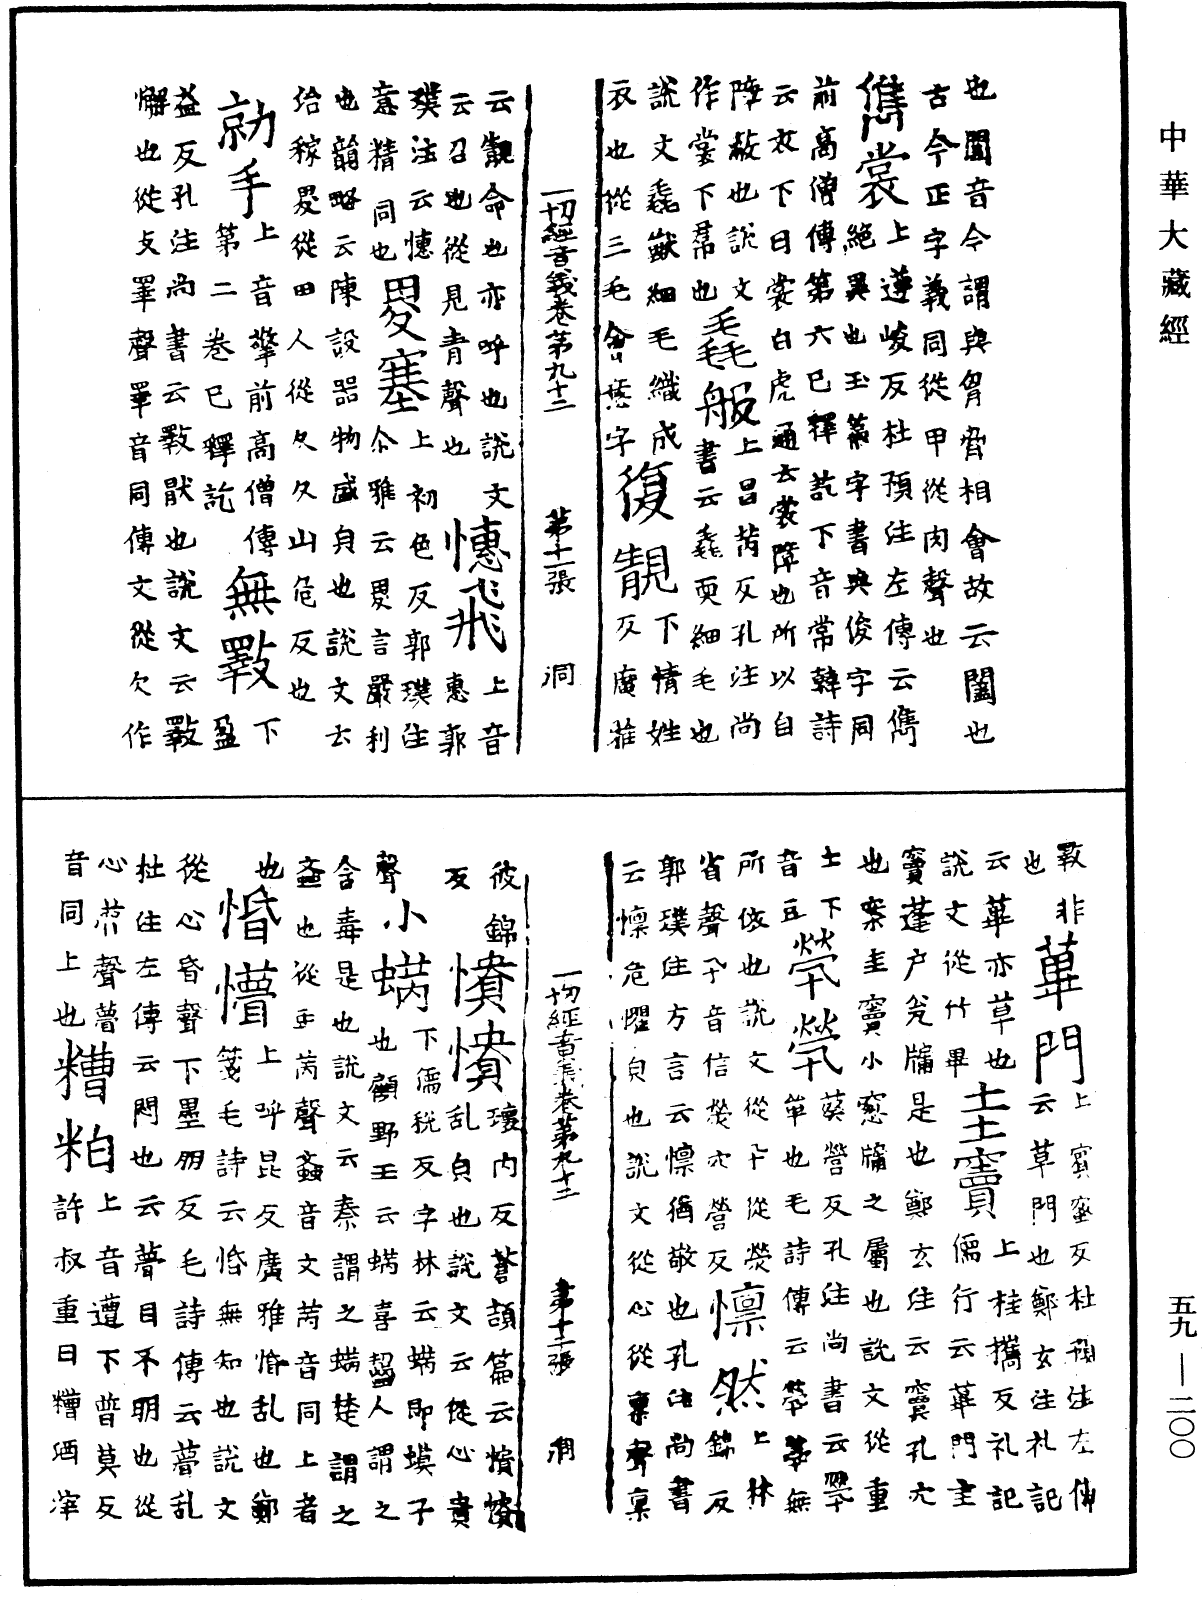 中華大藏經
也闔音合謂與胷脅相會故云闔也
古今正字義同從甲從肉聲也
儁裳上遵峻反杜預注左傳云儁
絕異也玉篇字書與俊字同
前高僧傳第六已釋訖下音常韓詩
云衣下曰裳白虎通云裳障也所以自
障蔽也說文
作常下帬也毳般上昌芮反孔注尚
書云毳耎細毛也
說文毳獸細毛織成
衣也從三毛會意字復靚下情姓
反廣雅
一切經音義卷第九十二 第十一張 洞
云靚命也亦呼也說文
云召也從見青聲也憓飛上音
惠郭
璞注云憓
意精同也畟塞上初色反郭璞注
尒雅云畟言嚴利
也韻略云陳設器物盛皃也說文云
治稼畟從田人從夂夂山危反也
勍手上音擎前高僧傳
第二巻已釋訖無斁下
盈
益反孔注尚書云斁猒也說文云斁
懈也從攴睪聲睪音同傳文從欠作
斁非蓽門上賓蜜反杜預注左傳
也云草門也鄭玄注礼記
云蓽亦草也圭竇上桂攜反礼記
說文從竹畢儒行云蓽門圭
竇蓬户瓮牖是也鄭玄注云竇孔穴
也案圭竇小窓牖之屬也說文從重
土下音豆煢煢葵營反孔注尚書云煢
單也毛詩傳云煢煢無
所依也說文從卂從熒
省聲卂音信熒穴營反懍然上林
錦反
郭璞注方言云懍猶敬也孔注尚書
云懍危懼皃也說文從心從稟聲稟
一切經音義卷第九十二 第十二張 洞
彼錦反憒憒瓌內反蒼頡篇云憒憒
乱皃也說文云從心貴
聲小蜹下儒稅反字林云蜹即蟆子
也顧野王云蜹喜齧人謂之
含毒是也說文云秦謂之蜹楚謂之
蚊也從虫芮聲蚊音文芮音同上者
也惛懵上呼昆反廣雅惛乱也鄭
箋毛詩云惛無知也說文
從心昏聲下墨朋反毛詩傳云懵乱
杜注左傳云悶也云瞢目不明也從
心瞢聲瞢糟粕上音遭下普莫反
音同上也許叔重曰糟酒滓
五九—二〇〇